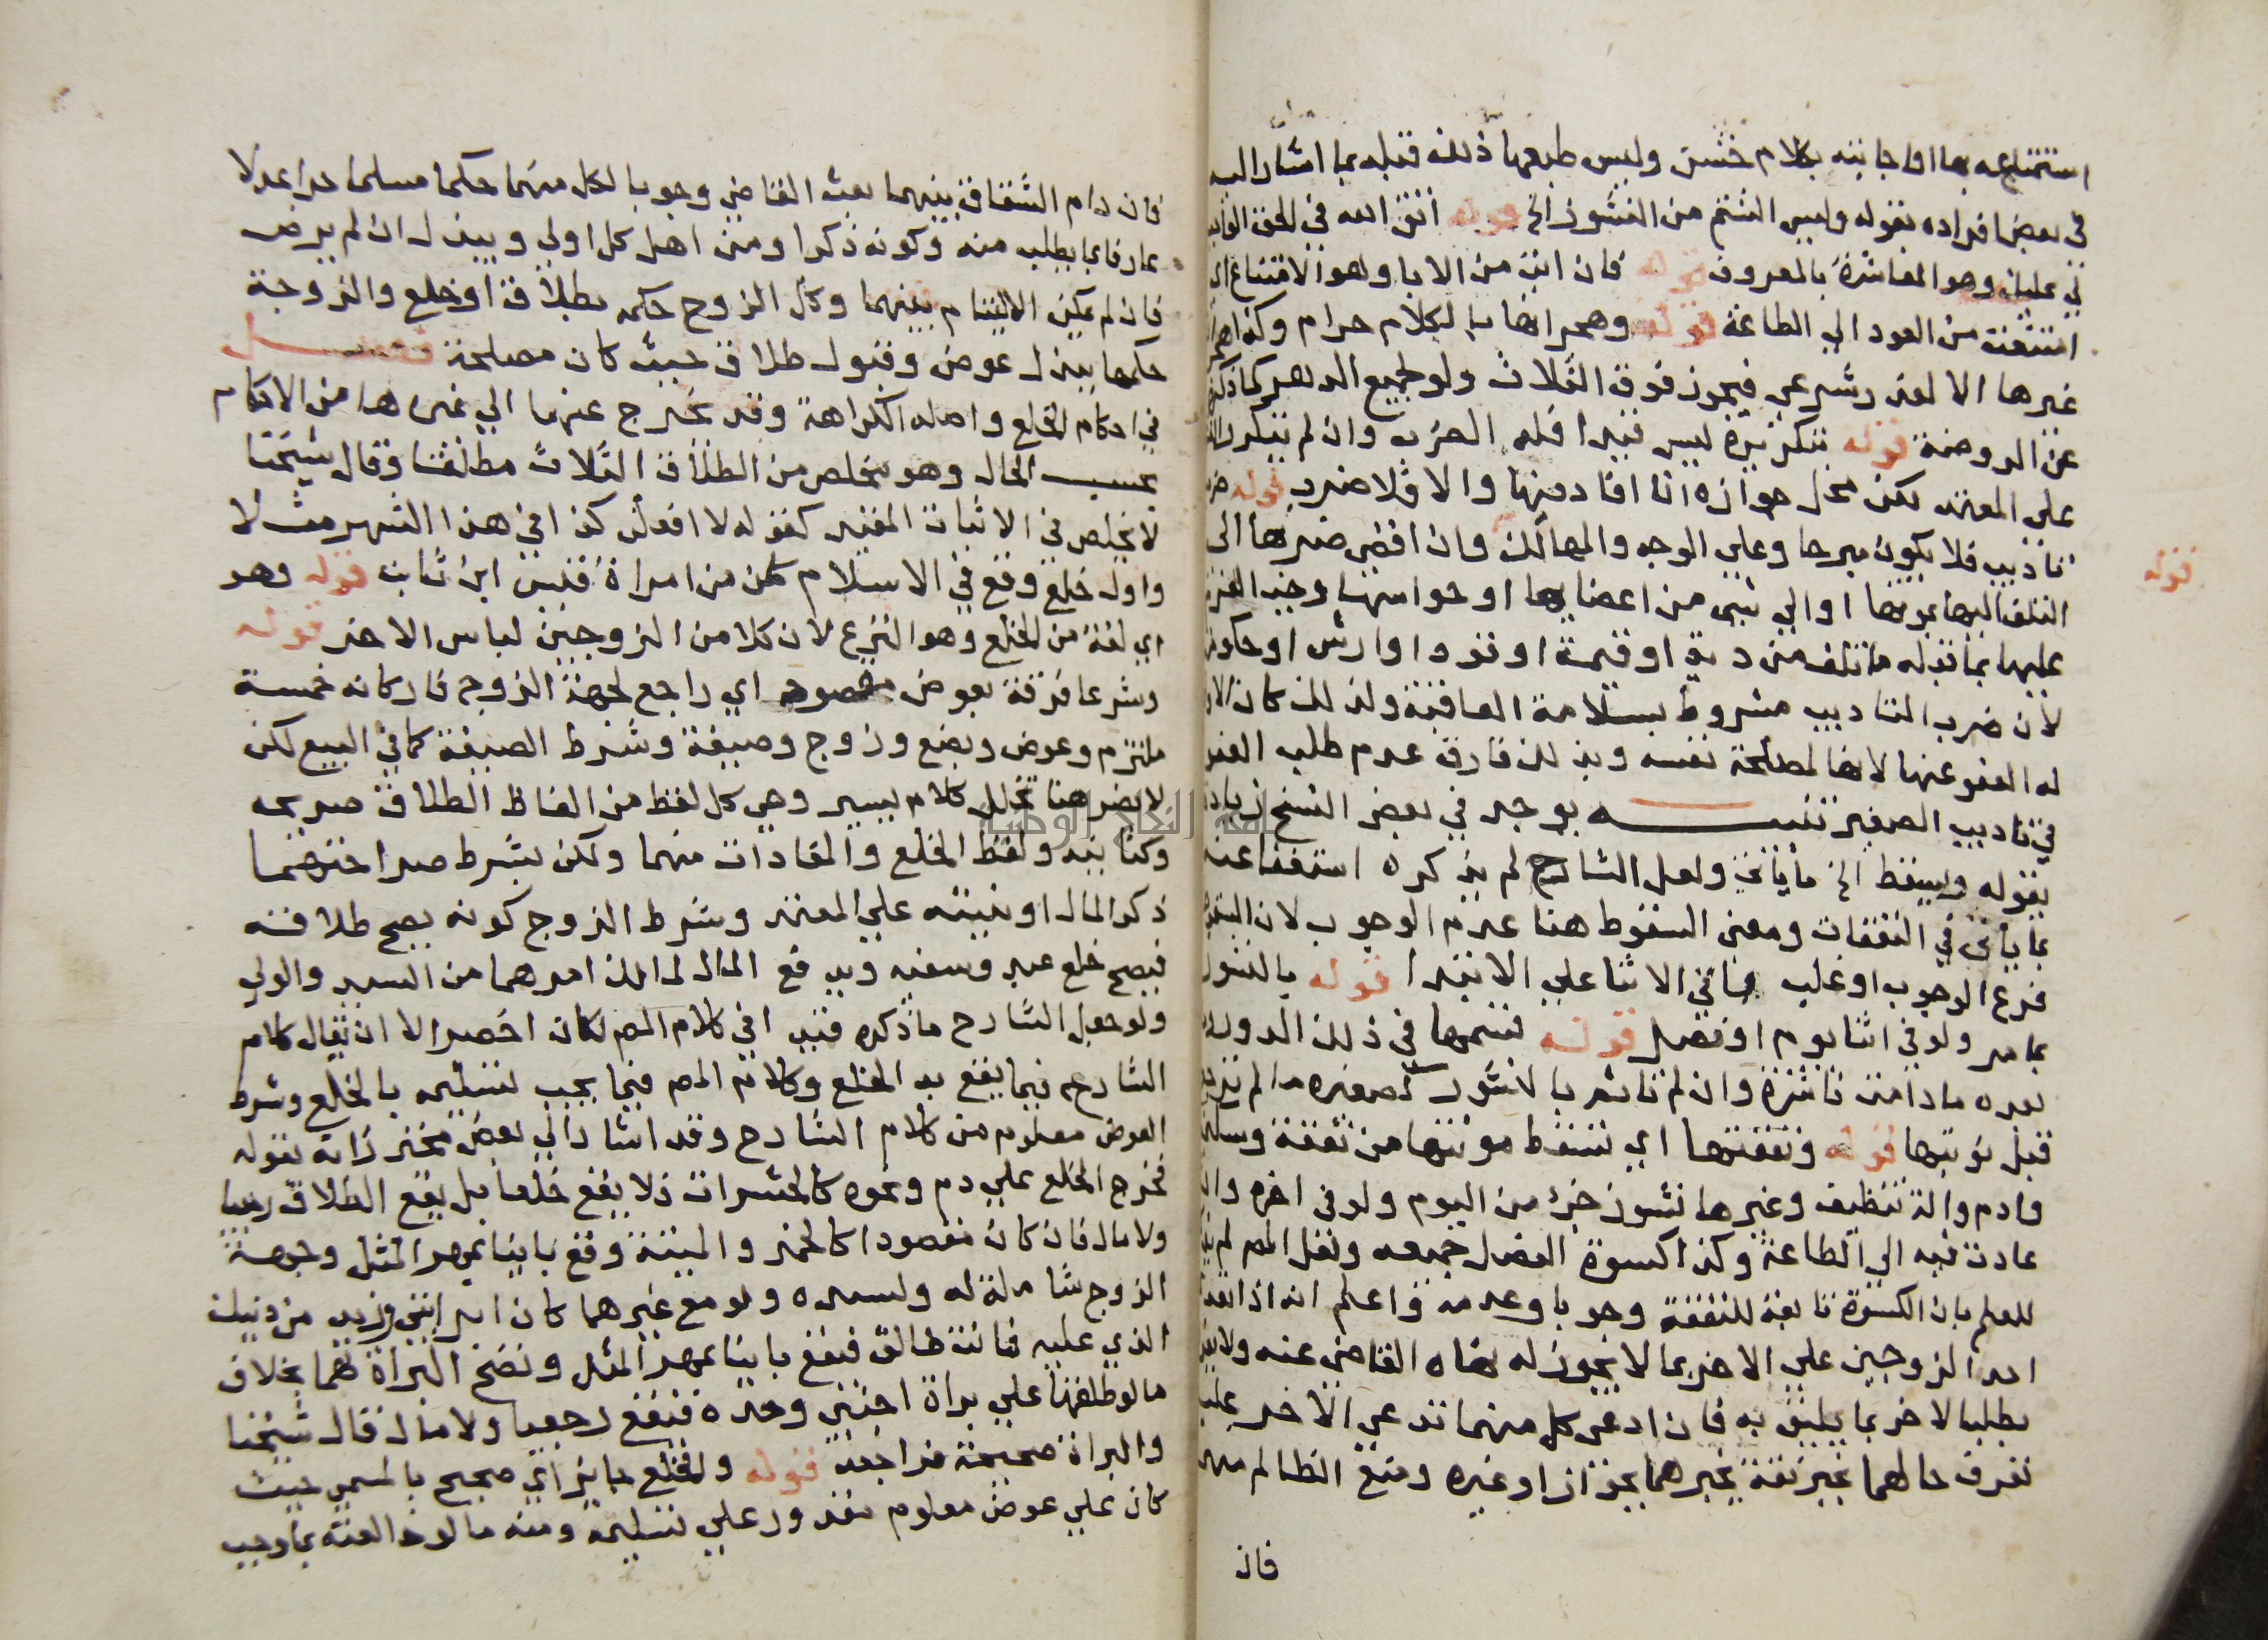 استمتاعه بها او اجابته بكلام خشن وليس طبعها ذلك قبله بما اشار اليه
في بعض افراده بقوله وليس الشتم من النشوز الخ قوله اتق الله في الحق الواجب
لي عليك وهو المعاشرة بالمعروف قوله فان ابت من الابا وهو الامتناع اي
امتنعت من العود الي الطاعة قوله وهجرانها بالكلام حرام وكذا هجر
غيرها الا لعذر شرعي فيجوز فوق الثلاث ولو لجميع الدهر كما ذكره
عن الروضة قوله بتكرره ليس قيدا فله الضرب وان لم يتكرر
علي المعتمد لكن محل جوازه اذا افاد منها والا فلا ضرب قوله ضرب
تاديب فلا يكون مبرحا وعلي الوجه والمهالك وان افضي ضربها الي
قوله
التلف اليها بموتها او الي شي من اعضايها او حواسها وجب الغرم
عليها بما قبله ما تلف من دية او قيمة او قود او ارش او حكومة
لان ضرب التاديب مشروط بسلامة العاقبة ولذلك كان الاولي
له العفو عنها لانها لمصلحة نفسه وبذلك فارق عدم طلب العفو
في تاديب الصغير تنبيه يوجد في بعض النسخ زيادة
بقوله ويسقط الخ ما ياتي ولعل الشارح لم يذكره استغنا عنه
بما ياتي في النفقات ومعني السقوط هنا عدم الوجوب لان السقوط
فرع الوجوب او غلب ما في الاثنا علي الابتدا قوله بالنشوز
بما مر ولو في اثنا يوم او فصل قوله قسمها في ذلك الدور
بعده ما دامت ناشزة وان لم تاثم بالنشوز كصغيره ما لم
قبل نوبتها قوله ونفقتها اي تسقط مونتها من نفقة وسكن
وادم والة تنظيف وغيرها نشوز جزء من اليوم ولو في اخره وان
عادت فيه الي الطاعة وكذا كسوة الفصل جميعه ولعل المص لم
للعلم بان الكسوة تابعة للنفقة وجوبا وعدمه واعلم انه اذا تعدي
احد الزوجين علي الاخر بما لا يجوز له نهاه القاضي عنه ولا
بطلب الاخر بما يليق به فان ادعي كل منهما تعدي الاخر عليه
تعرف حالهما بخبر ثقة يخبرهما بجوار او غيره ومنع الظالم منهما
فان
فان دام الشقاق بينهما بعث القاضي وجوبا لكل منهما حكما مسلما حرا عدلا
عارفا بما يطلب منه وكونه ذكرا ومن اهل كل اولي ويبذل ان لم يرض
فان لم يمكن الالتيام بينهما وكل الزوج حكمه بطلاق او خلع والزوجة
حكمها ببذل عوض وقبول طلاق حيث كان مصلحة فصل
في احكام الخلع واصله الكراهة وقد يخرج عنها الي غيرها من الاحكام
بحسب الحال وهو يخلص من الطلاق الثلاث مطلقا وقال شيخنا
لا يخلص في الاثبات المقيد كقوله لا افعلن كذا في هذا الشهر مثلا
واول خلع وقع في الاسلام كان من امراة قيس ابن ثابت قوله وهو
اي لغة من الخلع وهو النزع لان كلا من الزوجين لباس الاخر قوله
وشرعا فرقة بعوض مقصود اي راجع لجهة الزوج فاركانه خمسة
ملتزم وعوض وبضع وزوج وصيغة وشرط الصيغة كما في البيع لكن
لا يضر هنا تخلل كلام يسير وهي كل لفظ من الفاظ الطلاق صريحه
وكنايته ولفظ الخلع والمفادات منهما ولكن بشرط صراحتهما
ذكر المال او نيته علي المعتمد وشرط الزوج كونه يصح طلاقه
فيصح خلع عبد وسفيه ويدفع المال لمالك امرهما من السيد والولي
ولو جعل الشارح ما ذكره قيدا في كلام المص لكان اخصر الا ان يقال كلام
الشارح فيما يقع به الخلع وكلام المص فيما يجب تسليمه بالخلع وشرط
العوض معلوم من كلام الشارح وقد اشار الي بعض محترزاته بقوله
فخرج الخلع علي دم ونحوه كالحشرات فلا يقع خلعا بل يقع الطلاق رجعيا
ولا مال فان كان مقصودا كالخمر والميتة وقع باينا بمهر المثل وجهة
الزوج شاملة له ولسيده ولو مع غيرهما كان ابراتني وزيد من دينك
الذي عليه فانت طالق فيقع باينا بمهر المثل وتصح البراة لهما بخلاف
ما لو طلقها علي براة اجنبي وحده فيقع رجعيا ولا مال قال شيخنا
والبراة صحيحة فراجعه قوله والخلع جايز اي صحيح بالمسمي حيث
كان علي عوض معلوم مقدور علي تسليمه ومنه ما لو خالعته بما وجب